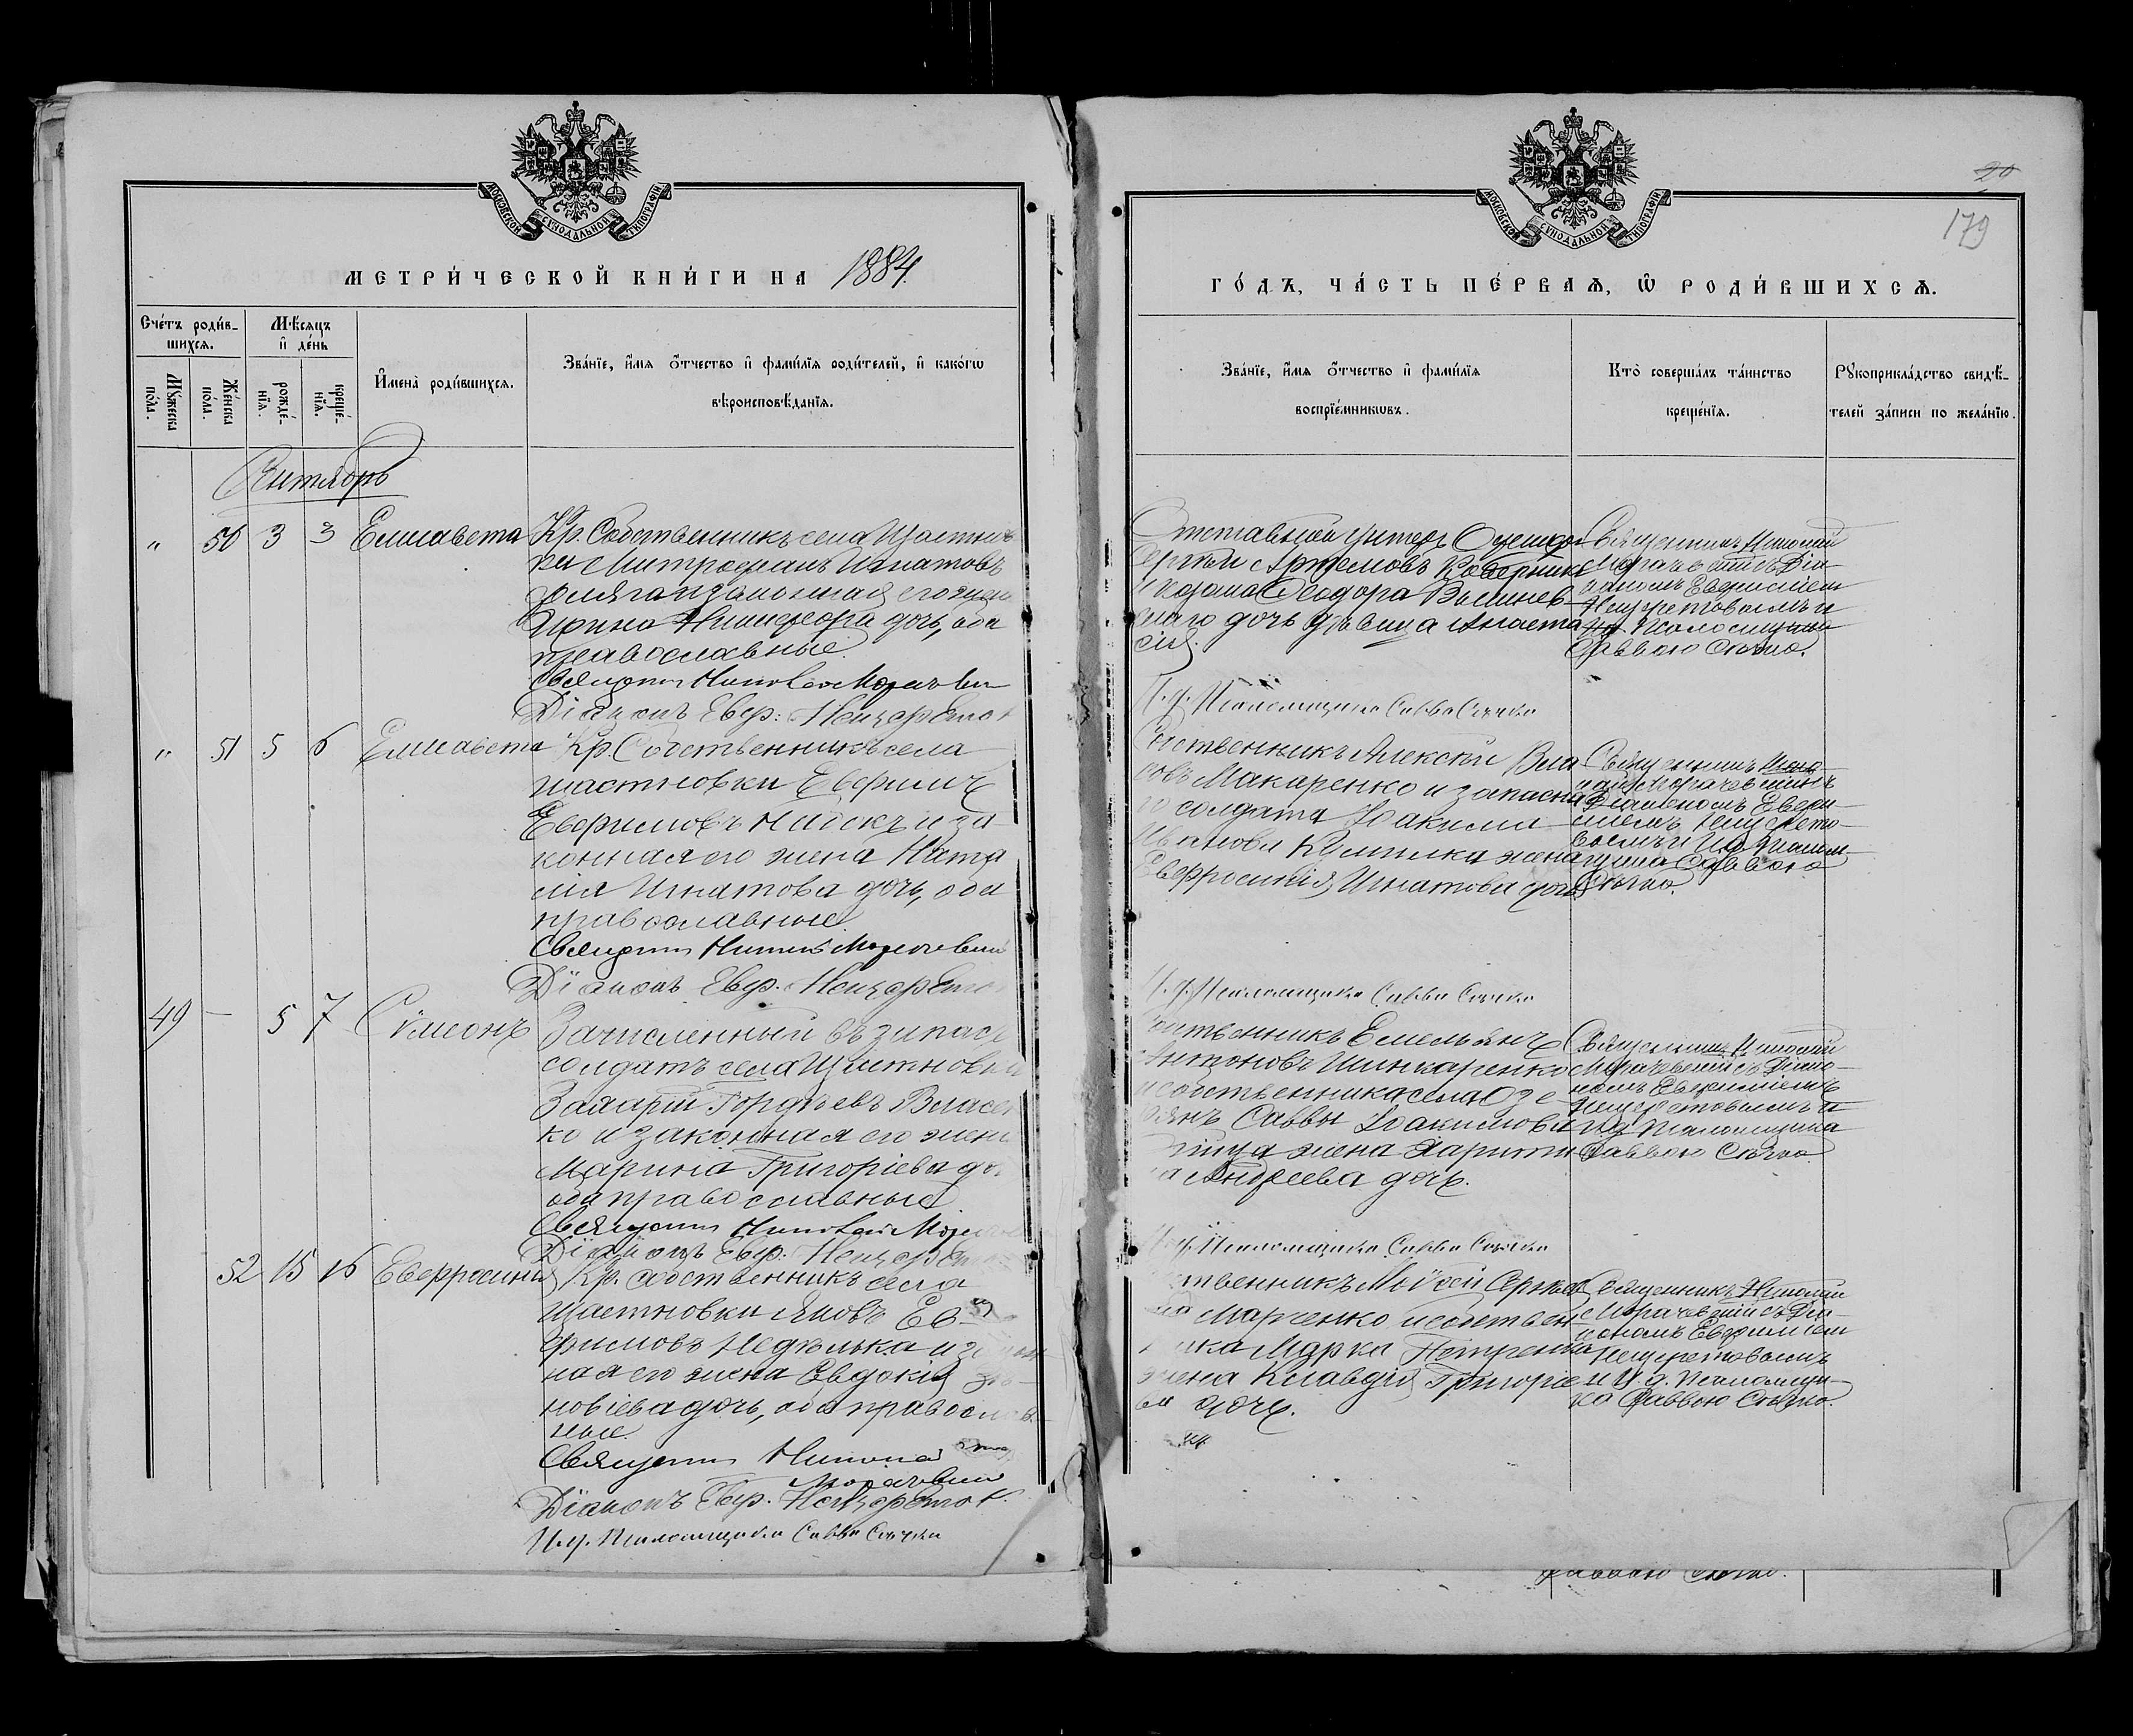 МОСКОВСКОЙ СѴНОДАЛЬНОЙ ТИПОГРАФІИ
МЕТРИ́ЧЕСКОЙ КНИ́ГИ НА 1884
Сче́тъ роди́в-
шихсѧ.
Мꙋ́жеска по́ла.
Же́нска по́ла.
Мѣ́сѧцъ и҆ де́нь
рожде́-
нїѧ.
креще́-
нїѧ.
И҆мена̀ роди́вшихсѧ.
Зва́нїе, и҆́мѧ ѻ҆́тчество и҆ фами́лїѧ роди́телей, и҆ како́гѡ
вѣроисповѣ́данїѧ.
Сентябрь
" 50 3 3 Елисавета
Кр. Собственникъ села Щастнов
ки Митрофанъ Игнатовъ
и законная его жена
Ирина дочь, оба
православные.
Священникъ Николай Морачевскій
Діаконъ Евф. Нещеретов
" 51 5 6 Елисавета
Кр. Собственникъ села
Щастновки Евфимъ
Евфимовъ и за
конная его жена Ната
лія Игнатова дочь, оба
православные.
Священникъ Николай Морачевскій
Діаконъ Евф. Нещеретов
49 — 5 7 Сѵмеонъ
Зачисленный въ запасъ
солдатъ села Щастновки
Захарій Гордѣевъ Власен
ко и законная его жена
Марина Григоріева до
оба православные
Священникъ Николай Мора
Діаконъ Евф. Нещерет
52 15 16 Евфросинія
Кр. собственникъ села
Щастновки Яковъ Ев
фимовъ Недѣлька и закон
ная его жена Евдокія Зѣ-
новіева дочь, оба православ-
ные.
Священникъ Николай
Морачевскій
Діаконъ Евф. Нещеретов.
И. д. Псаломщика Савва Сѣчко
20
179
МОСКОВСКОЙ СѴНОДАЛЬНОЙ ТИПОГРАФІИ
ГО́ДЪ, ЧА́СТЬ ПЕ́РВАѦ, Ѡ҆ РОДИ́ВШИХСѦ.
Зва́нїе, и҆́мѧ ѻ҆́тчество и҆ фами́лїѧ
воспрїе́мникѡвъ.
Кто̀ соверша́лъ та́инство
креще́нїѧ.
Рꙋкоприкла́дство свидѣ́-
телей за́писи по жела́нїю.
Отставной Унтеръ Офицеръ
Сергѣй Артемовъ
и Ѳеодора Вишнев
скаго дочь дѣвица Анаста
сія.
Священникъ Николай
Морачевскій съ Діа-
кономъ Евфиміем
Нещеретовымъ и
Псаломщика
Саввою Сѣчко.
И. д. Псаломщика Савва Сѣчко
Собственникъ Алексѣй Вла
совъ Макаренко и запасна
го солдата Іоакима
Иванова жена
Евфросинія Игнатова дочь
Священникъ Нико-
лай Морачевскій съ
Діакономъ Евфи-
міемъ Нещерето-
вымъ и И. д. Псалом-
щика Саввою
Сѣчко.
И. д. Псаломщика Савва Сѣчко
Собственникъ Емельянъ
Антоновъ Шинкаренко
и собственника села Озе-
рянъ Саввы Іоакимова
жена Харити
на Андреева дочь.
Священникъ Николай
Морачевскій съ Діако-
номъ Евфиміемъ
Нещеретовымъ и
И. д. Псаломщика
Саввою Сѣчко.
И. д. Псаломщика Савва Сѣчко
Собственникъ Моѵсей Сергѣе
Марченко и собствен
ника Марка Петренка
жена Клавдія Григоріе
ва дочь.
Священникъ Николай
Морачевскій съ Діа-
кономъ Евфиміем
Нещеретовымъ
и И. д. Псаломщи-
ка Саввою Сѣчко.
Саввою Сѣчко.